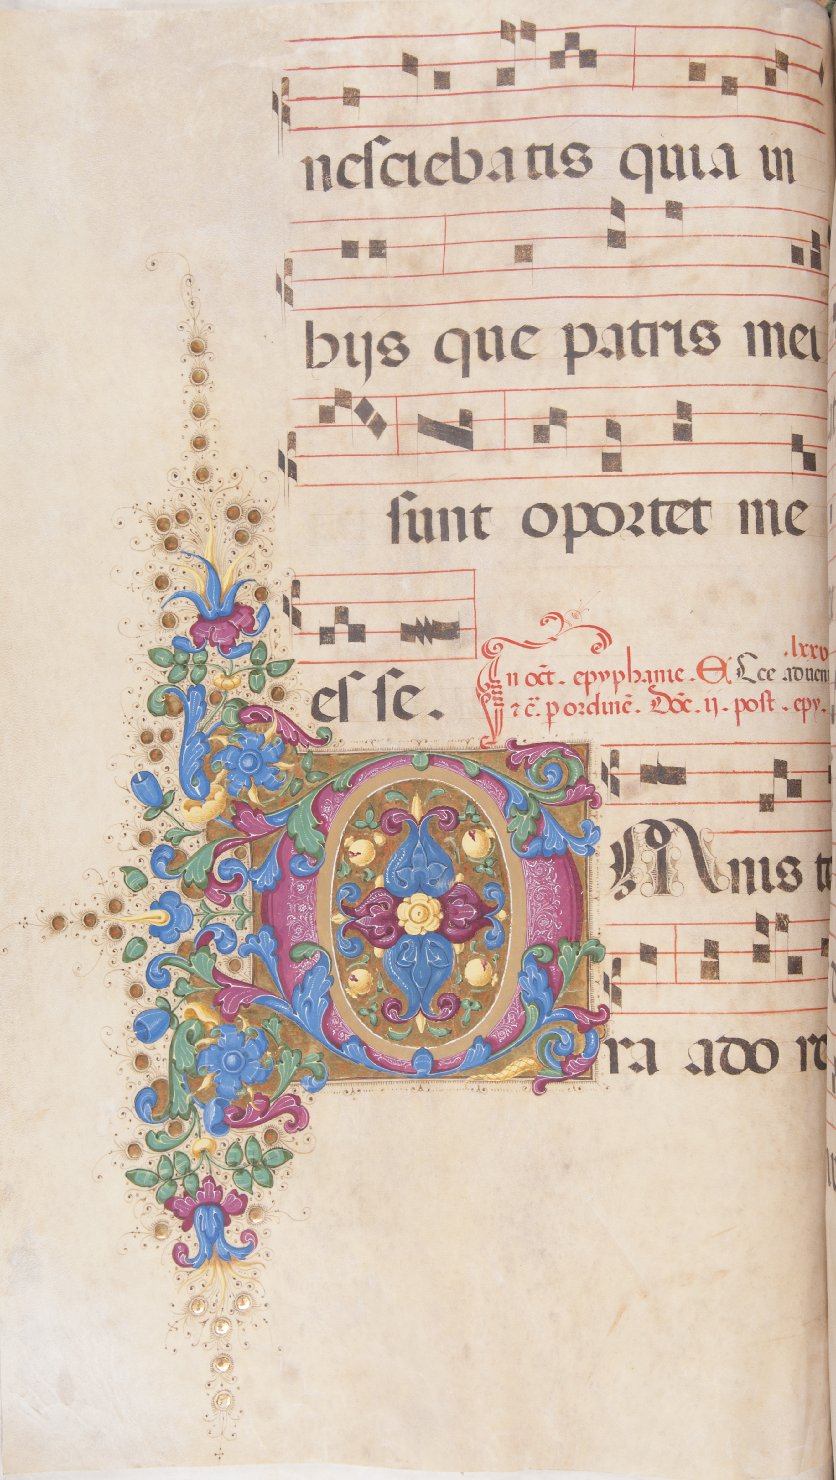 nesciebatis quia in
bijs que patris mei
sunt oportet me
esse.
.lxxv
In oct̄. epyphanie. Ecce adveni
p ordinē. Doc̄. ij. post. epy.
OMnis t
ra ado r